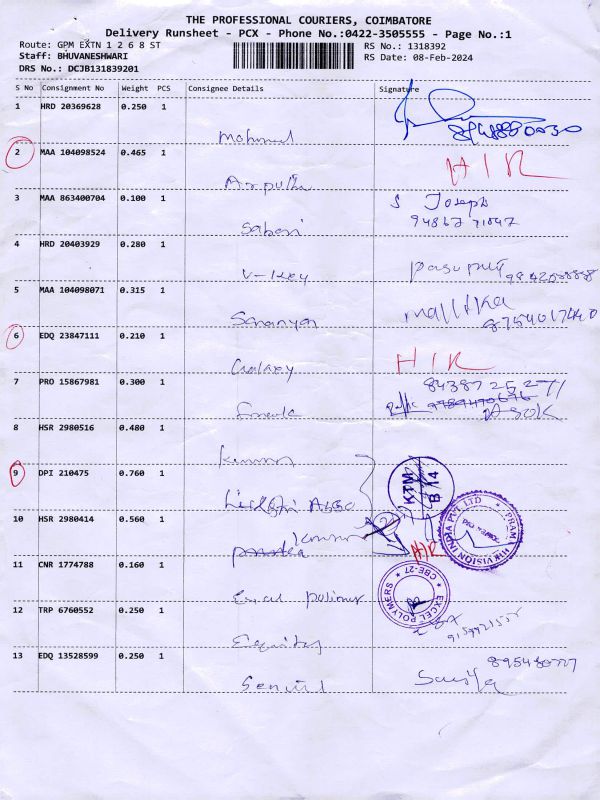 THE PROFESSIONAL COURIERS, COIMBATORE
Delivery Runsheet - PCX - Phone No.:0422-3505555 - Page No.:1
Route: GPM EXTN 1 2 6 8 ST
RS No.: 1318392
Staff: BHUVANESHWARI
RS Date: 08-Feb-2024
DRS No.: DCJB131839201
S No Consignment No Weight PCS Consignee Details Signature
1 HRD 20369628 0.250 1
Mohmed
2 MAA 104098524 0.465 1 HIR
3 MAA 863400704 0.100 1 S Joseph
Saberi
4 HRD 20403929 0.280 1
V-Key
5 MAA 104098071 0.315 1 mallika
8754017440
Saranya
6 EDQ 23847111 0.210 1 HIR
Galaxy
7 PRO 15867981 0.300 1 ASOK
8 HSR 2980516 0.480 1
Kumar
9 DPI 210475 0.760 1
KTM
B 14
10 HSR 2980414 0.560 1 HIR
Kumar
PRAMA HIKVISION INDIA PVT LTD
11 CNR 1774788 0.160 1
EXCEL POLYMERS
CBE-27
Excel polimer
12 TRP 6760552 0.250 1
Equitas
13 EDQ 13528599 0.250 1